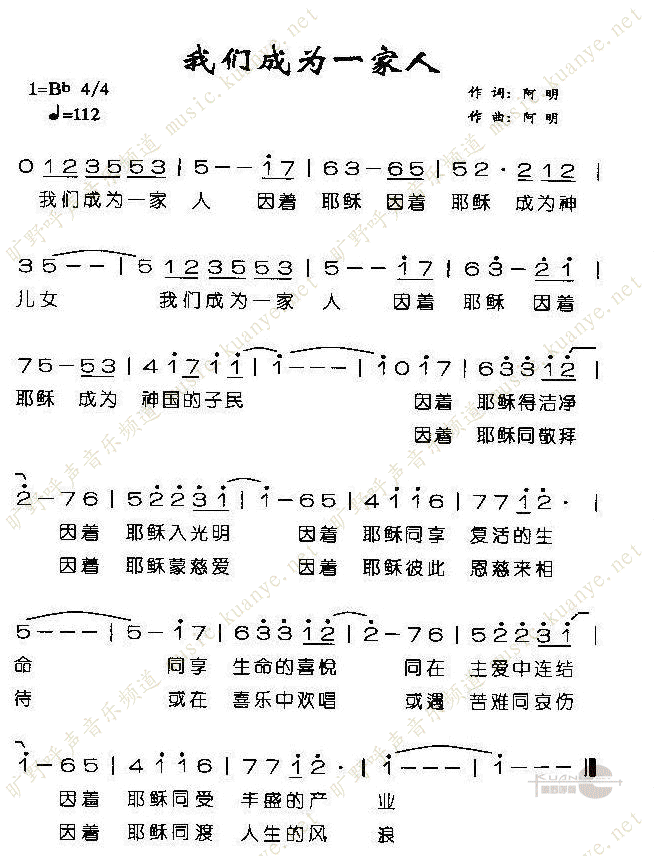 我们成为一家人
1=B♭ 4/4
作词：阿明
♩=112
作曲：阿明
0 1 2 3 5 5 5 3 | 5 - - i 7 | 6 3 - 6 5 | 5 2 · 2 1 2 |
我们成为一家 人 因着 耶稣 因着 耶稣 成为神
3 5 - - | 5 1 2 3 5 5 5 3 | 5 - - i 7 | 6 3 - 2̇ i |
儿女 我们成为一家 人 因着 耶稣 因着
7 5 - 5 3 | 4 i 7 i i | i - - - | i 0 i 7 | 6 3̇ 3̇ i 2̇ |
耶稣 成为 神国的子民 因着 耶稣得洁净
因着 耶稣同敬拜
2̇ - 7 6 | 5 2̇ 2̇ 3̇ i | i - 6 5 | 4 i i 6 | 7 7 i 2̇ · |
因着 耶稣入光明 因着 耶稣同享 复活的生
因着 耶稣蒙慈爱 因着 耶稣彼此 恩慈来相
5 - - - | 5 - i 7 | 6 3̇ 3̇ i 2̇ | 2̇ - 7 6 | 5 2̇ 2̇ 3̇ i |
命 同享 生命的喜悦 同在 主爱中连结
待 或在 喜乐中欢唱 或遇 苦难同哀伤
i - 6 5 | 4 i i 6 | 7 7 i 2̇ · | i - - - | i - - - ‖
因着 耶稣同受 丰盛的产 业
因着 耶稣同渡 人生的风 浪
旷野呼声音乐频道 music.kuanye.net
KUAN
旷野呼声